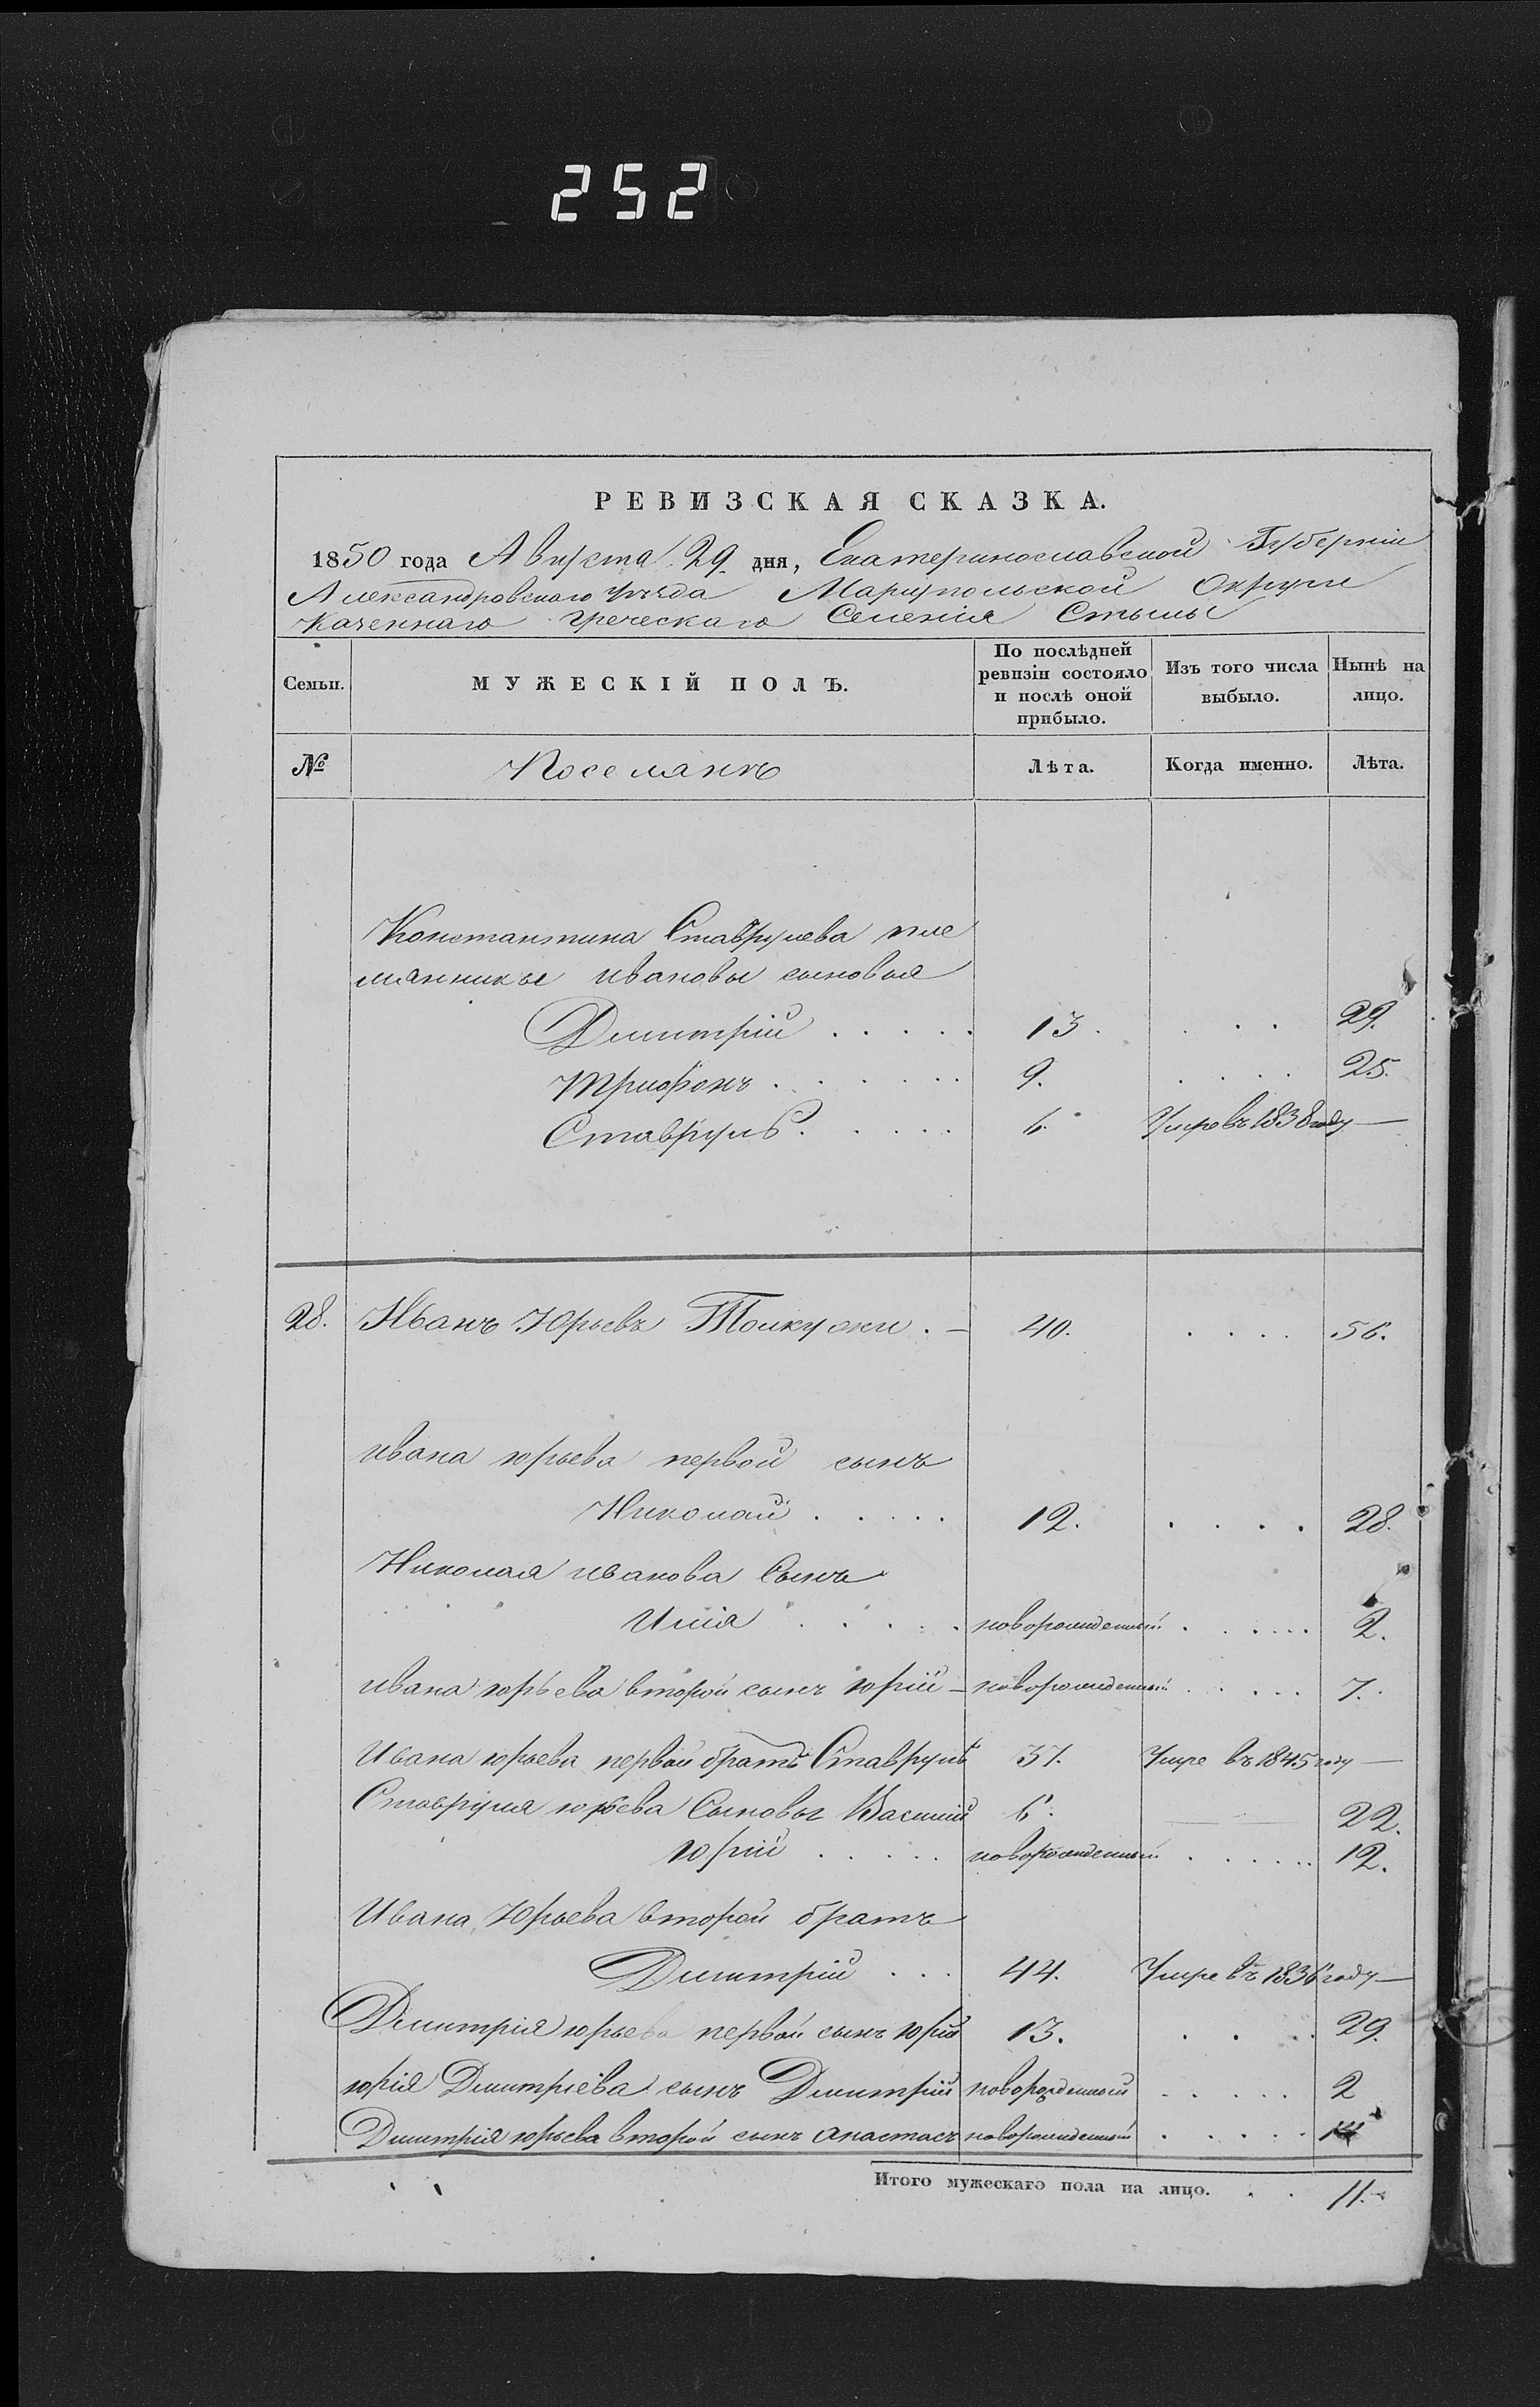 252
РЕВИЗСКАЯ СКАЗКА.
1850 года Августа 29 дня, Екатеринославской Губерніи
Александровскаго уѣзда Маріупольской Округи
Казеннаго Греческаго Селенія Стылы
Семьи. МУЖЕСКІЙ ПОЛЪ. По послѣдней ревизіи состояло и послѣ оной прибыло. Изъ того числа выбыло. Нынѣ на лицо.
№ Поселянъ Лѣта. Когда именно. Лѣта.
Константина Ставрулева пле
мянникы Ивановы сыновья
Димитрій . . . . . 13. . . . 29.
Трифонъ . . . . . . 9. . . . . 25.
Ставрулъ . . . . . 6. Умре въ 1838 году —
28. Иванъ Юрьевъ . — 40. . . . . 56.
Ивана Юрьева первой сынъ
Николай . . . . . 12. . . . . 28.
Николая Иванова Сынъ
Илія . . . . . новорожденный . . . . . 2.
Ивана Юрьева второй сынъ Юрій — новорожденный . . . . . 7.
Ивана Юрьева первой братъ Ставрулъ 37. Умре въ 1845 году —
Ставруля Юрьева Сыновья Василій 6. — 22.
Юрій . . . . . новорожденный . . . . . . 12.
Ивана Юрьева второй братъ
Димитрій . . . 44. Умре въ 1836 году —
Димитрія Юрьева первой сынъ Юрій 13. . . . 29.
Юрія Димитріева сынъ Димитрій новорожденный . . . . . 2
Димитрія Юрьева второй сынъ Анастасъ новорожденный . . . . .
Итого мужескаго пола на лицо. . . 11.